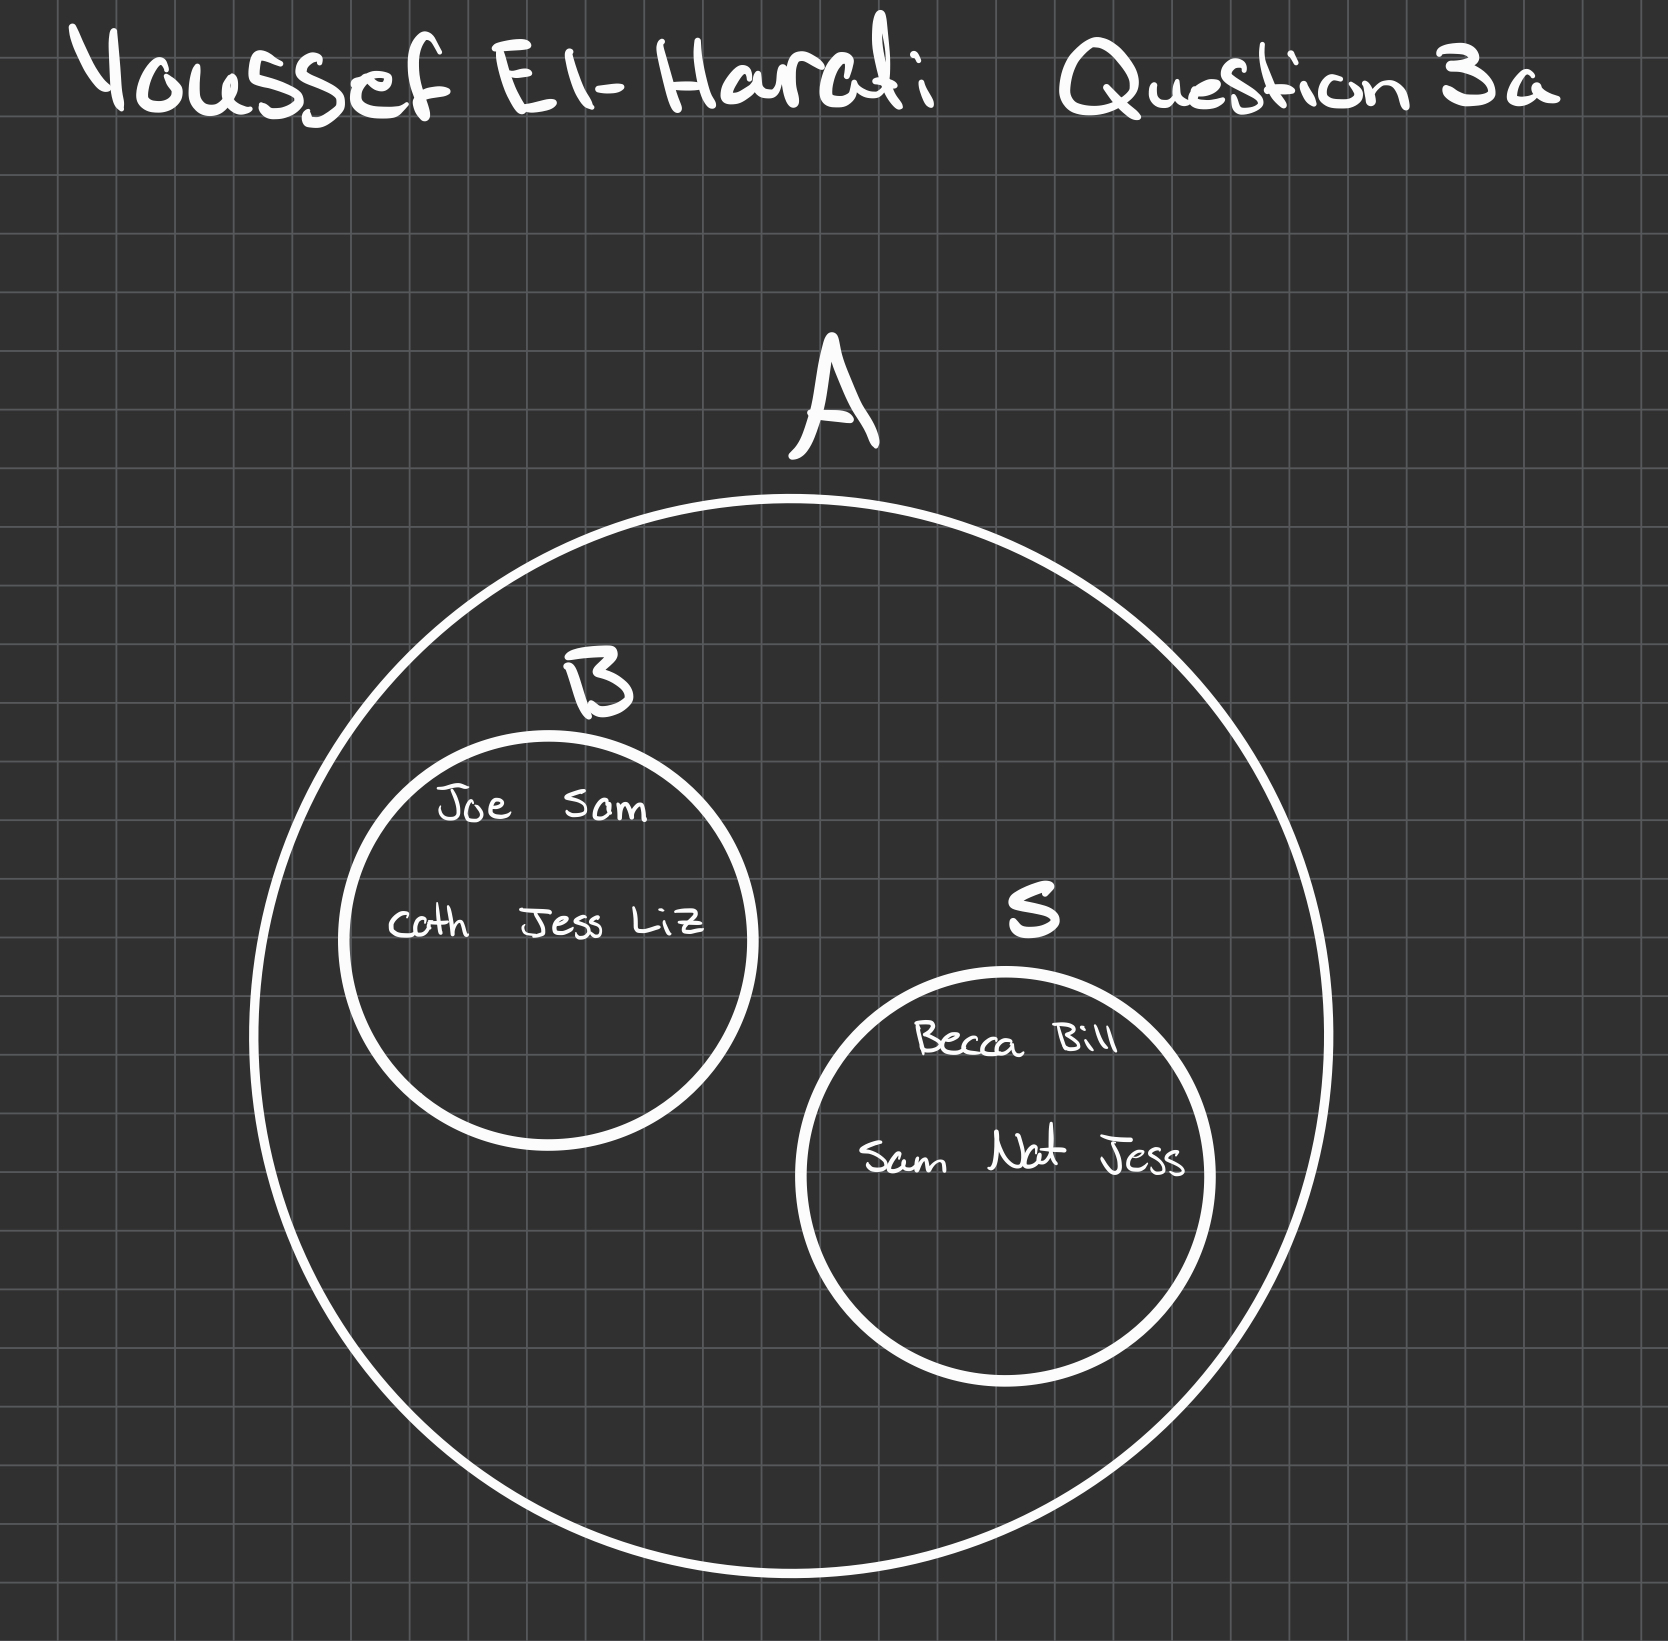 Youssef El-Harati Question 3a
A
B
Joe Sam
Cath Jess Liz
S
Becca Bill
Sam Nat Jess